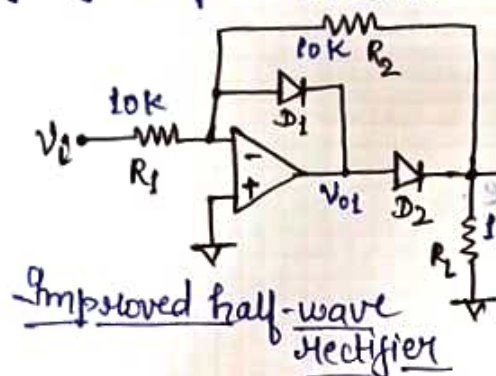 10K R2
10K
D1
Vi
R1
-
+
V01
D2
RL
1
Improved half-wave
rectifier